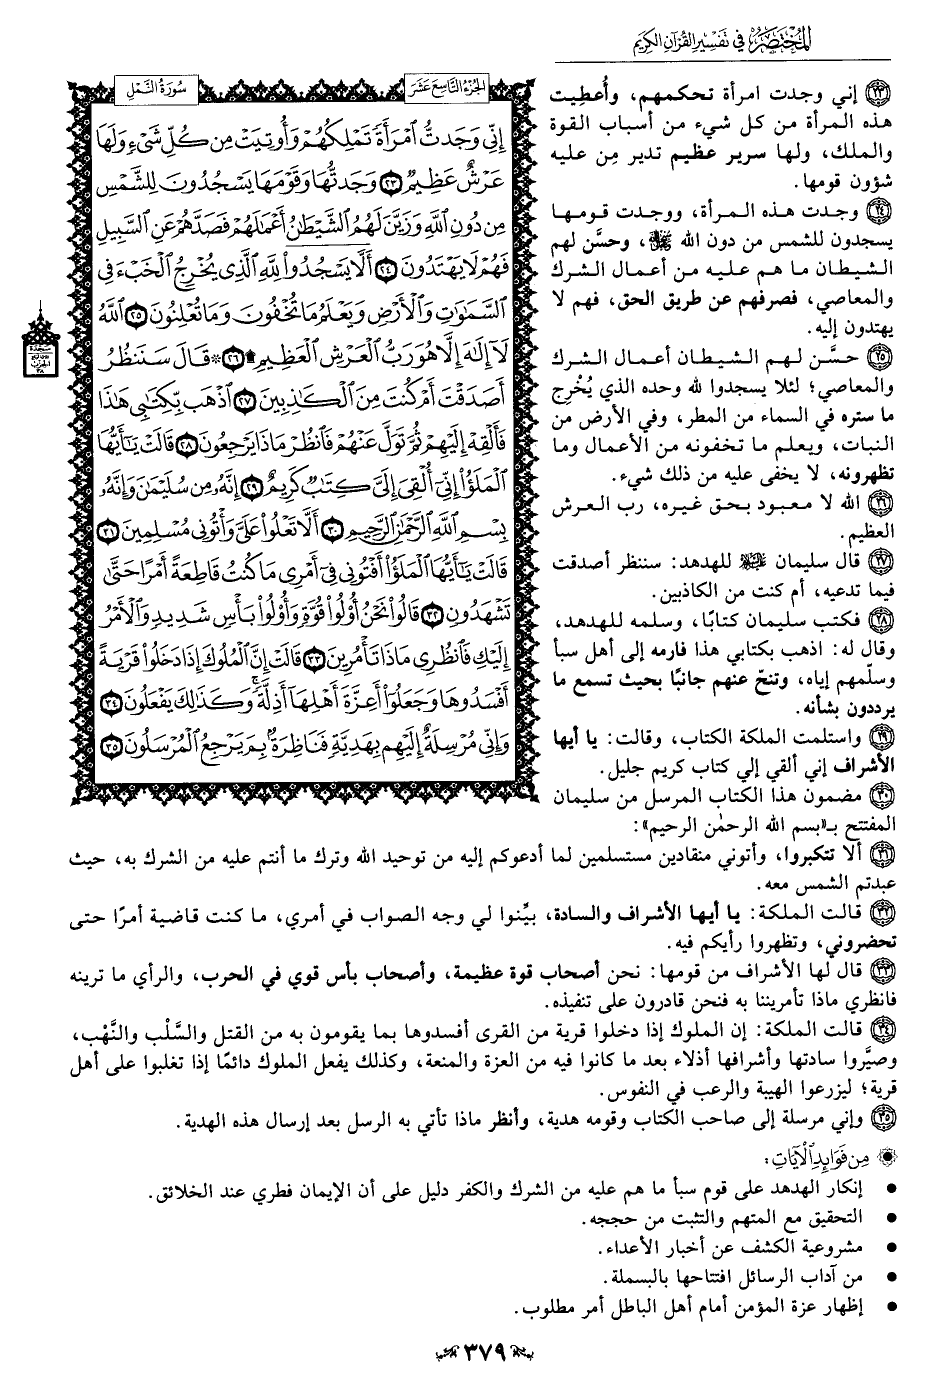 المختصر في تفسير القرآن الكريم
الجزء التاسع عشر
سورة النمل
إِنِّي وَجَدتُّ ٱمْرَأَةً تَمْلِكُهُمْ وَأُوتِيَتْ مِن كُلِّ شَيْءٍ وَلَهَا
عَرْشٌ عَظِيمٌ ٢٣ وَجَدتُّهَا وَقَوْمَهَا يَسْجُدُونَ لِلشَّمْسِ
مِن دُونِ ٱللَّهِ وَزَيَّنَ لَهُمُ ٱلشَّيْطَٰنُ أَعْمَٰلَهُمْ فَصَدَّهُمْ عَنِ ٱلسَّبِيلِ
فَهُمْ لَا يَهْتَدُونَ ٢٤ أَلَّا يَسْجُدُوا۟ لِلَّهِ ٱلَّذِي يُخْرِجُ ٱلْخَبْءَ فِي
ٱلسَّمَٰوَٰتِ وَٱلْأَرْضِ وَيَعْلَمُ مَا تُخْفُونَ وَمَا تُعْلِنُونَ ٢٥ ٱللَّهُ
لَآ إِلَٰهَ إِلَّا هُوَ رَبُّ ٱلْعَرْشِ ٱلْعَظِيمِ ۩ ٢٦ ۞ قَالَ سَنَنظُرُ
أَصَدَقْتَ أَمْ كُنتَ مِنَ ٱلْكَٰذِبِينَ ٢٧ ٱذْهَب بِّكِتَٰبِي هَٰذَا
فَأَلْقِهْ إِلَيْهِمْ ثُمَّ تَوَلَّ عَنْهُمْ فَٱنظُرْ مَاذَا يَرْجِعُونَ ٢٨ قَالَتْ يَٰٓأَيُّهَا
ٱلْمَلَؤُا۟ إِنِّيٓ أُلْقِيَ إِلَيَّ كِتَٰبٌ كَرِيمٌ ٢٩ إِنَّهُۥ مِن سُلَيْمَٰنَ وَإِنَّهُۥ
بِسْمِ ٱللَّهِ ٱلرَّحْمَٰنِ ٱلرَّحِيمِ ٣٠ أَلَّا تَعْلُوا۟ عَلَيَّ وَأْتُونِي مُسْلِمِينَ ٣١
قَالَتْ يَٰٓأَيُّهَا ٱلْمَلَؤُا۟ أَفْتُونِي فِيٓ أَمْرِي مَا كُنتُ قَاطِعَةً أَمْرًا حَتَّىٰ
تَشْهَدُونِ ٣٢ قَالُوا۟ نَحْنُ أُو۟لُوا۟ قُوَّةٍ وَأُو۟لُوا۟ بَأْسٍ شَدِيدٍ وَٱلْأَمْرُ
إِلَيْكِ فَٱنظُرِي مَاذَا تَأْمُرِينَ ٣٣ قَالَتْ إِنَّ ٱلْمُلُوكَ إِذَا دَخَلُوا۟ قَرْيَةً
أَفْسَدُوهَا وَجَعَلُوٓا۟ أَعِزَّةَ أَهْلِهَآ أَذِلَّةً ۖ وَكَذَٰلِكَ يَفْعَلُونَ ٣٤
وَإِنِّي مُرْسِلَةٌ إِلَيْهِم بِهَدِيَّةٍ فَنَاظِرَةٌۢ بِمَ يَرْجِعُ ٱلْمُرْسَلُونَ ٣٥
سجدة
٢٣ إني وجدت امرأة تحكمهم، وأُعطِيت
هذه المرأة من كل شيء من أسباب القوة
والملك، ولها سرير عظيم تدير مِن عليه
شؤون قومها.
٢٤ وجدت هذه المرأة، ووجدت قومها
يسجدون للشمس من دون الله ﷻ، وحسَّن لهم
الشيطان ما هم عليه من أعمال الشرك
والمعاصي، فصرفهم عن طريق الحق، فهم لا
يهتدون إليه.
٢٥ حسَّن لهم الشيطان أعمال الشرك
والمعاصي؛ لئلا يسجدوا لله وحده الذي يُخْرِج
ما ستره في السماء من المطر، وفي الأرض من
النبات، ويعلم ما تخفونه من الأعمال وما
تظهرونه، لا يخفى عليه من ذلك شيء.
٢٦ الله لا معبود بحق غيره، رب العرش
العظيم.
٢٧ قال سليمان للهدهد: سننظر أصدقت
فيما تدعيه، أم كنت من الكاذبين.
٢٨ فكتب سليمان كتابًا، وسلمه للهدهد،
وقال له: اذهب بكتابي هذا فارمه إلى أهل سبأ
وسلّمهم إياه، وتنحّ عنهم جانبًا بحيث تسمع ما
يرددون بشأنه.
٢٩ واستلمت الملكة الكتاب، وقالت: يا أيها
الأشراف إني ألقي إلي كتاب كريم جليل.
٣٠ مضمون هذا الكتاب المرسل من سليمان
المفتتح بـ«بسم الله الرحمٰن الرحيم»:
٣١ ألا تتكبروا، وأتوني منقادين مستسلمين لما أدعوكم إليه من توحيد الله وترك ما أنتم عليه من الشرك به، حيث
عبدتم الشمس معه.
٣٢ قالت الملكة: يا أيها الأشراف والسادة، بيِّنوا لي وجه الصواب في أمري، ما كنت قاضية أمرًا حتى
تحضروني، وتظهروا رأيكم فيه.
٣٣ قال لها الأشراف من قومها: نحن أصحاب قوة عظيمة، وأصحاب بأس قوي في الحرب، والرأي ما ترينه
فانظري ماذا تأمريننا به فنحن قادرون على تنفيذه.
٣٤ قالت الملكة: إن الملوك إذا دخلوا قرية من القرى أفسدوها بما يقومون به من القتل والسَّلْب والنَّهْب،
وصيَّروا سادتها وأشرافها أذلاء بعد ما كانوا فيه من العزة والمنعة، وكذلك يفعل الملوك دائمًا إذا تغلبوا على أهل
قرية؛ ليزرعوا الهيبة والرعب في النفوس.
٣٥ وإني مرسلة إلى صاحب الكتاب وقومه هدية، وأنظر ماذا تأتي به الرسل بعد إرسال هذه الهدية.
من فوائد الآيات:
• إنكار الهدهد على قوم سبأ ما هم عليه من الشرك والكفر دليل على أن الإيمان فطري عند الخلائق.
• التحقيق مع المتهم والتثبت من حججه.
• مشروعية الكشف عن أخبار الأعداء.
• من آداب الرسائل افتتاحها بالبسملة.
• إظهار عزة المؤمن أمام أهل الباطل أمر مطلوب.
٣٧٩